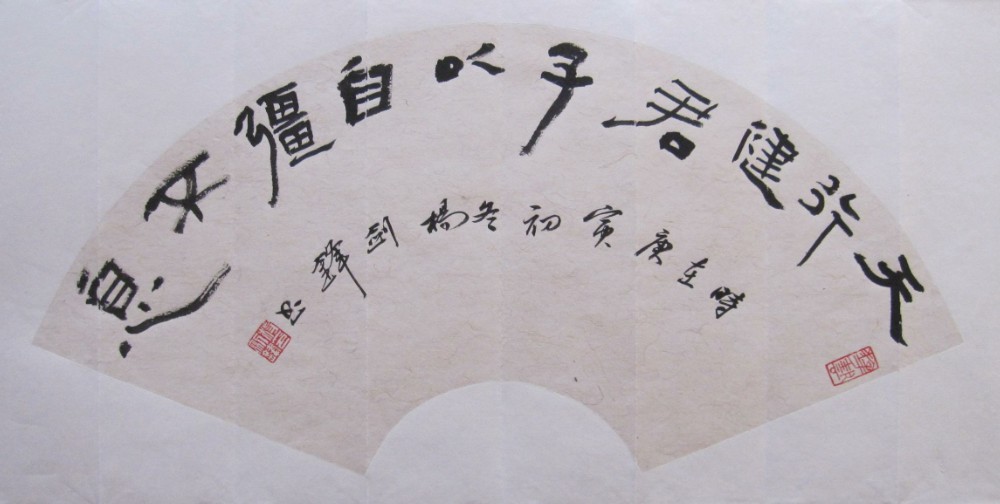 天行健君子以自彊不息
時在庚寅初冬楊剑书